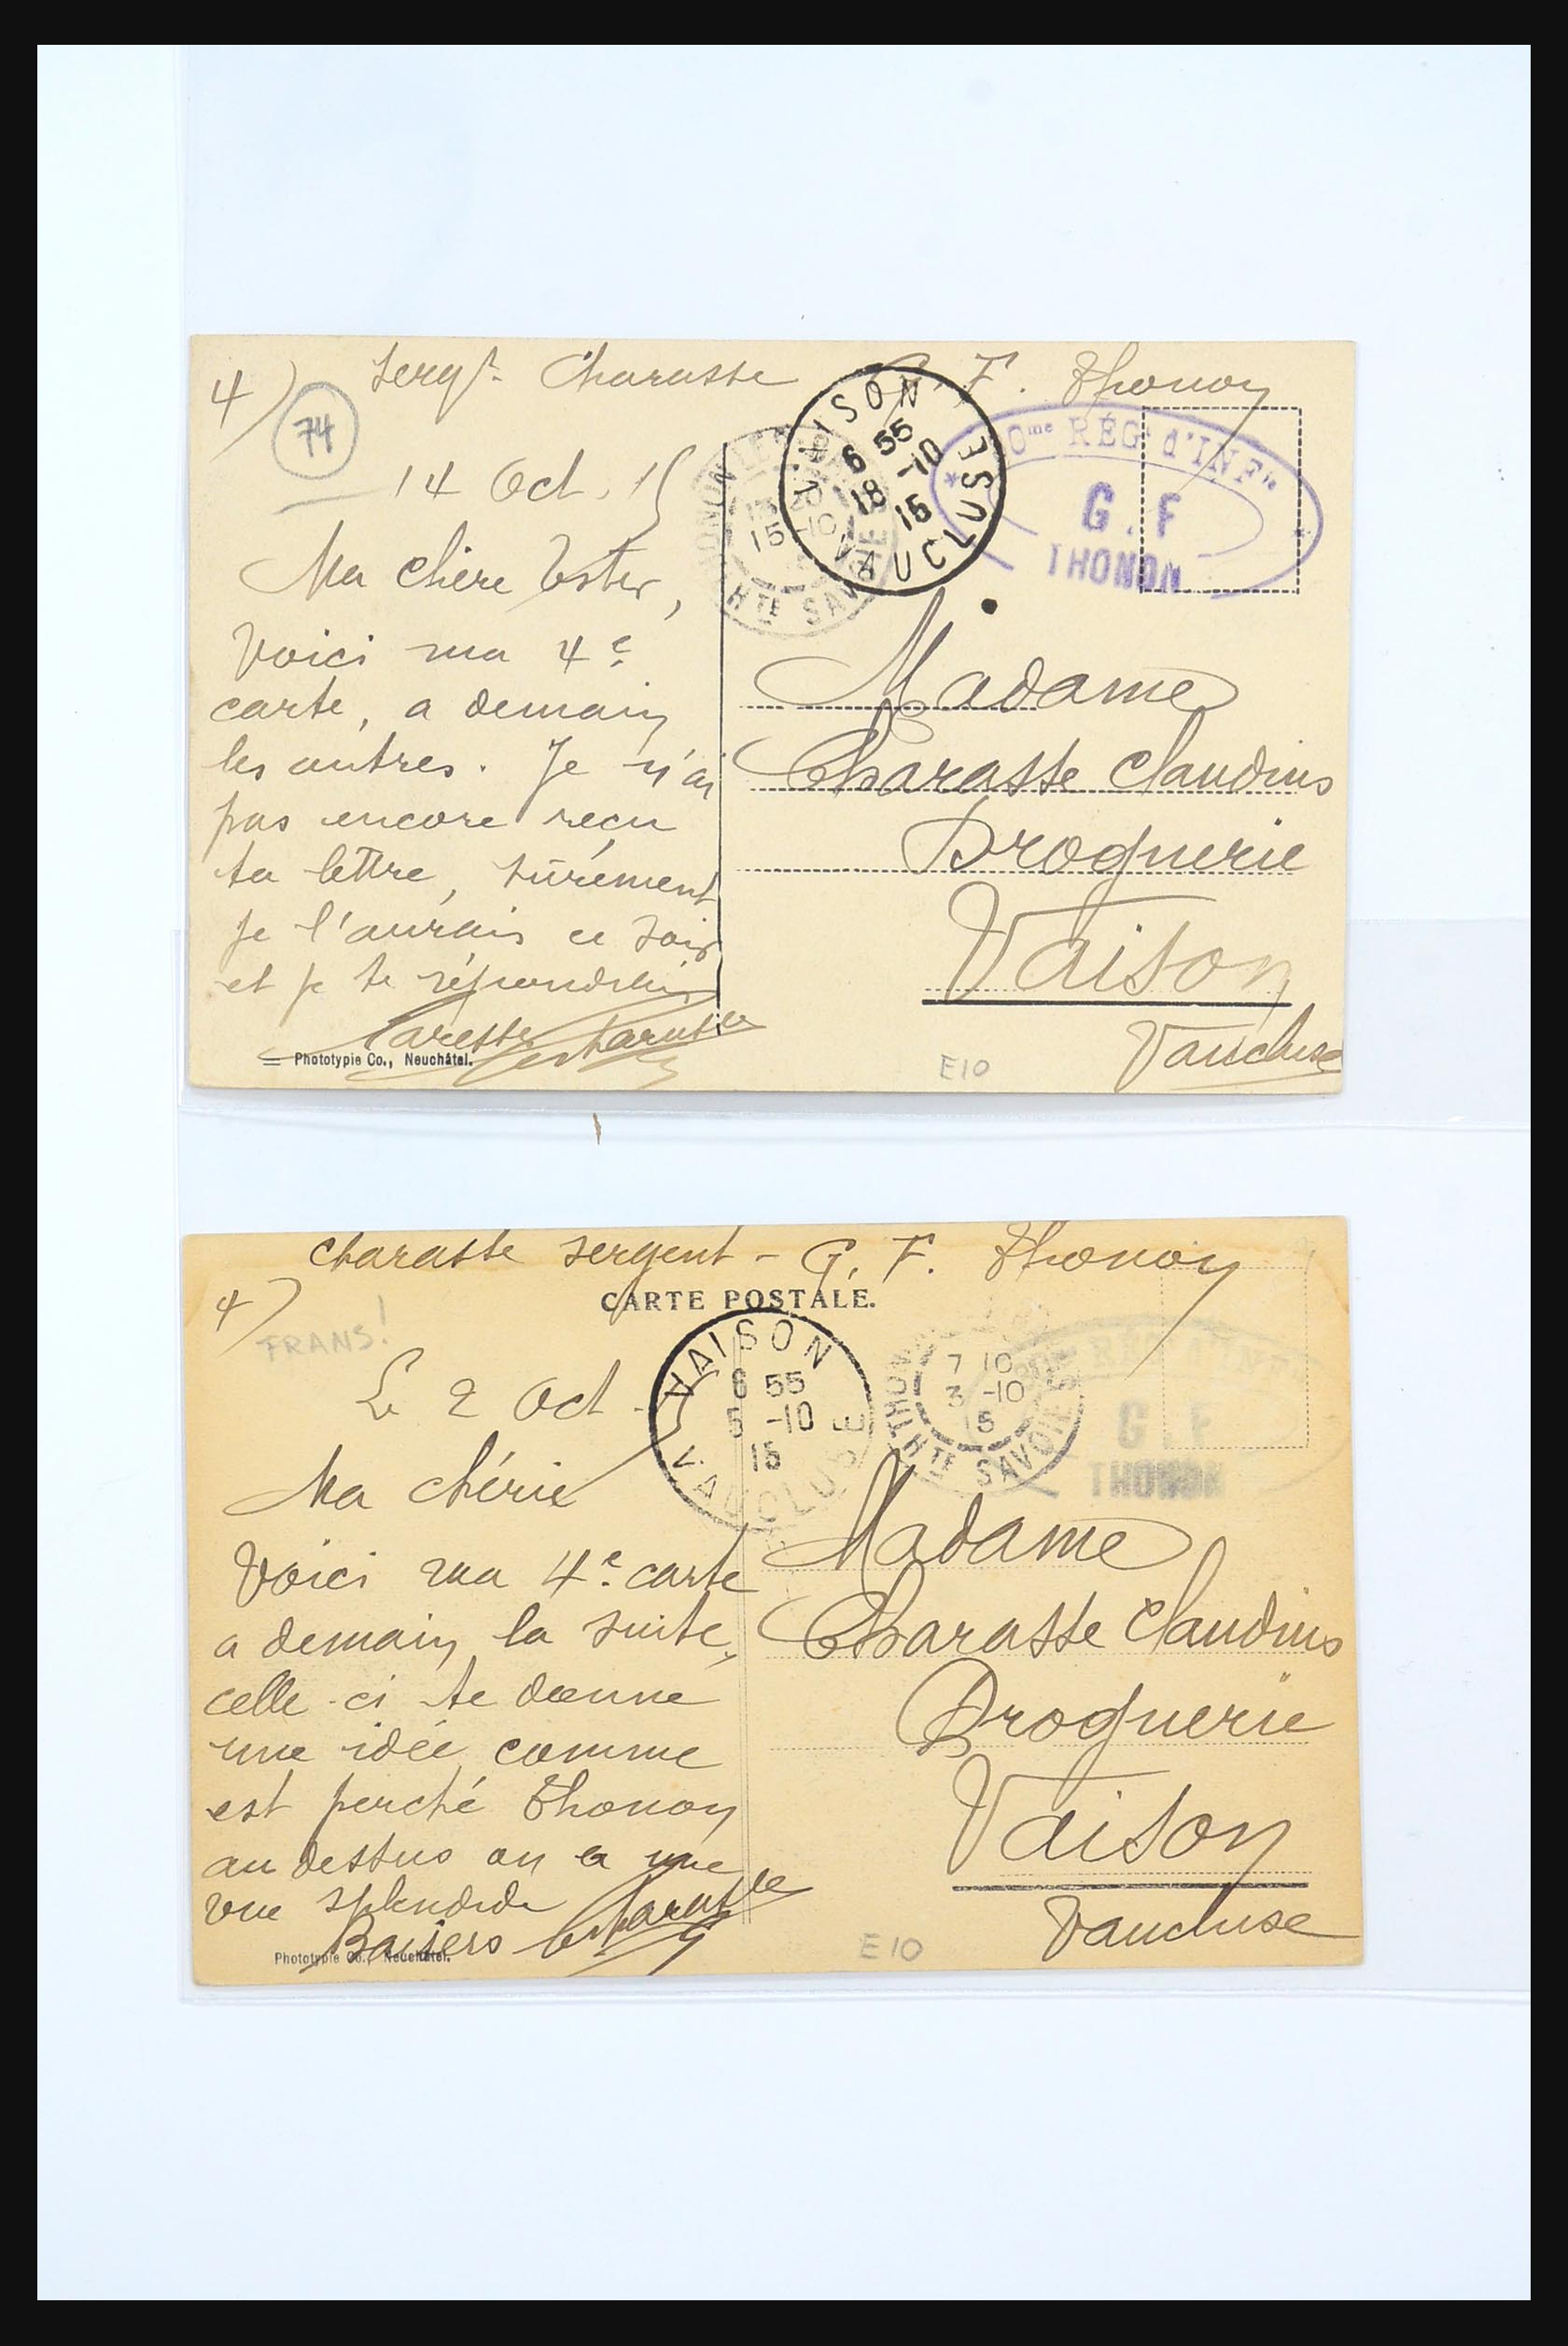 4) Sergt. Charasse G. F. Thonon
74
14 Oct. 15
Ma chère Ester,
Voici ma 4e
carte, a demain
les autres. Je n'ai
pas encore reçu
ta lettre, sûrement
je l'aurais ce soir
et je te répondrai
Caresses Charasse
Phototypie Co., Neuchâtel.
VAISON
6 55
18 -10
15
VAUCLUSE
THONON
15 -10
HTE SAVOIE
0me RÉGt d'INFie
G. F
THONON
Madame
Charasse Claudius
Droguerie
Vaison
Vaucluse
E10
Charasse Sergent - G. F. Thonon
4)
CARTE POSTALE.
TRANS!
Le 2 Oct.
Ma chérie
Voici ma 4e carte
a demain la suite,
celle-ci te donne
une idée comme
est perché Thonon
au dessus on a une
vue splendide
Baisers Charasse
Phototypie Co., Neuchâtel.
VAISON
6 55
5 -10
15
VAUCLUSE
THONON
7 10
3 -10
15
HTE SAVOIE
G. F
THONON
Madame
Charasse Claudius
Droguerie
Vaison
Vaucluse
E10